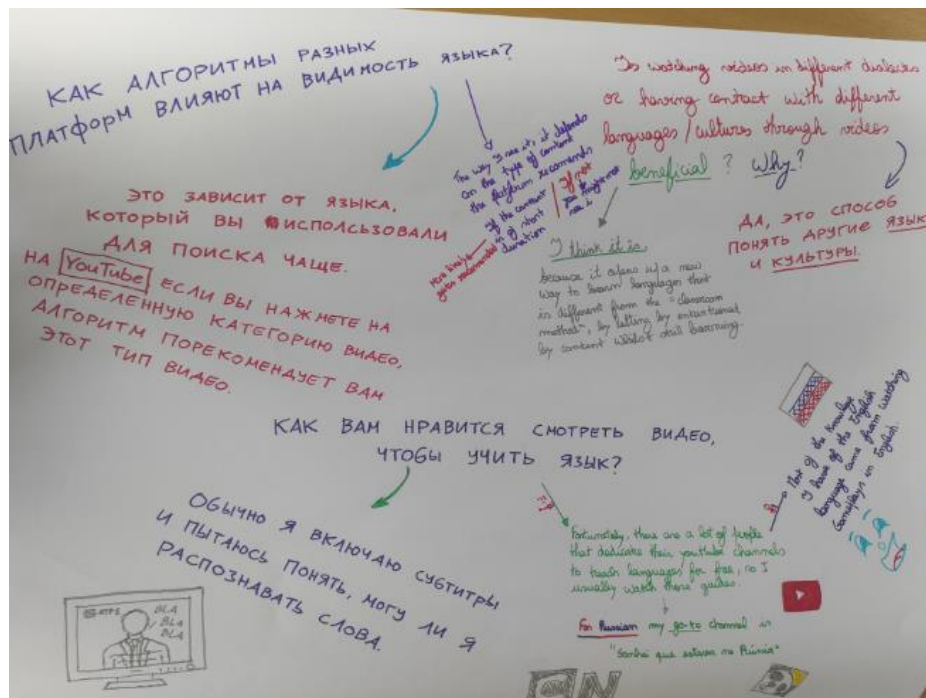 КАК АЛГОРИТМЫ РАЗНЫХ
ПЛАТФОРМ ВЛИЯЮТ НА ВИДИМОСТЬ ЯЗЫКА?
ЭТО ЗАВИСИТ ОТ ЯЗЫКА,
КОТОРЫЙ ВЫ ИСПОЛЬСЬЗОВАЛИ
ДЛЯ ПОИСКА ЧАЩЕ.
НА YouTube ЕСЛИ ВЫ НАЖМЕТЕ НА
ОПРЕДЕЛЕННУЮ КАТЕГОРИЮ ВИДЕО,
АЛГОРИТМ ПОРЕКОМЕНДУЕТ ВАМ
ЭТОТ ТИП ВИДЕО.
The way I see it, it depends
on the type of content
the platform recomends
If the content
is of short
duration
More likely
gets recommended
If not
you might not
see it
Is watching videos in different dialects
or having contact with different
languages/cultures through videos
beneficial? Why?
I think it is,
because it opens up a new
way to learn languages that
is different from the "classroom
method", by letting by entertained
by content whilst still learning.
ДА, ЭТО СПОСОБ
ПОНЯТЬ ДРУГИЕ ЯЗЫК
И КУЛЬТУРЫ.
КАК ВАМ НРАВИТСЯ СМОТРЕТЬ ВИДЕО,
ЧТОБЫ УЧИТЬ ЯЗЫК?
ОБЫЧНО Я ВКЛЮЧАЮ СУБТИТРЫ
И ПЫТАЮСЬ ПОНЯТЬ, МОГУ ЛИ Я
РАСПОЗНАВАТЬ СЛОВА.
BLA
BLA
BLA
Fortunately, there are a lot of people
that dedicate their youtube channels
to teach languages for free, so I
usually watch those guides.
For Russian my go-to channel is
"Sonhei que estava na Rússia"
Most of the knowledge
I have of the English
language came from watching
Gameplays in English.